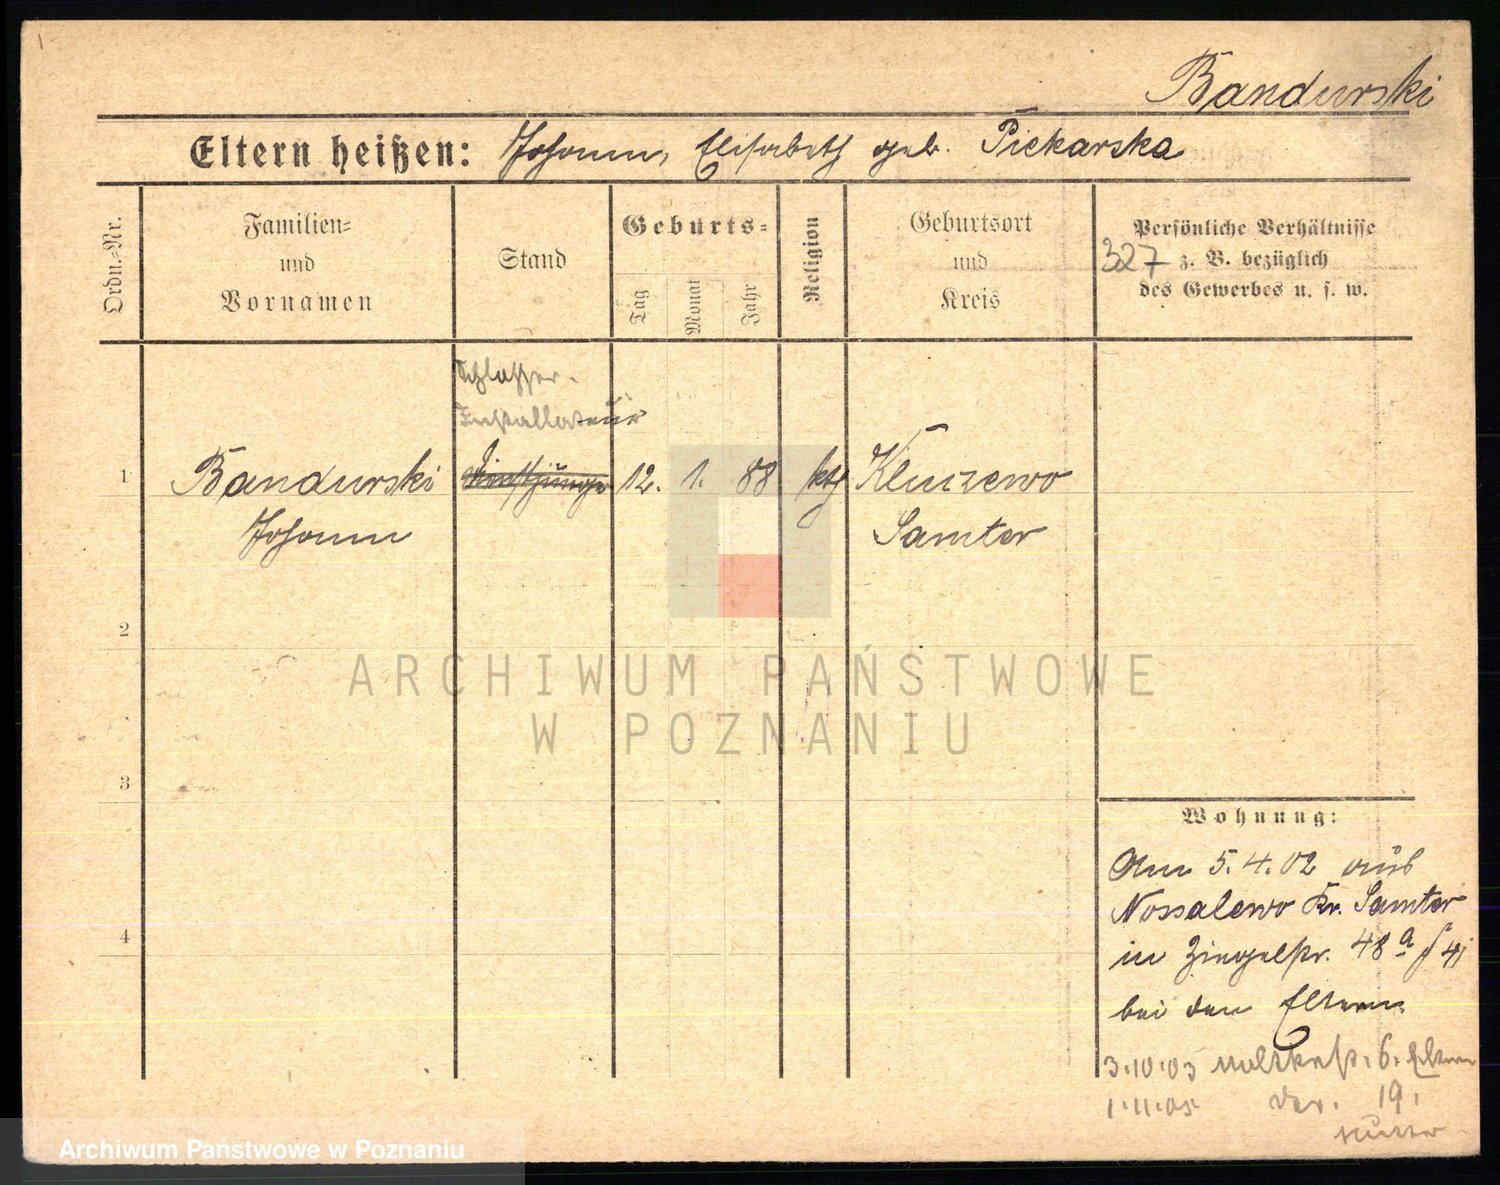 Bandurski
Eltern heißen: Johann, Elisabeth geb. Piekarska
Ordn.=Nr.
Familien=
und
Vornamen
Stand
Geburts=
Tag
Monat
Jahr
Religion
Geburtsort
und
Kreis
Persönliche Verhältnisse
327 z. B. bezüglich
des Gewerbes u. s. w.
Schlosser-
Installateur
1 Bandurski 12. 1. 88 kth Kluczewo
Johann Samter
2
3
4
ARCHIWUM PAŃSTWOWE
W POZNANIU
Wohnung:
Am 5.4.02 aus
Nossalewo Kr. Samter
in Ziegelstr. 48a
bei den Eltern
3.10.03 6. Eltern
1.11.05 19.
Archiwum Państwowe w Poznaniu